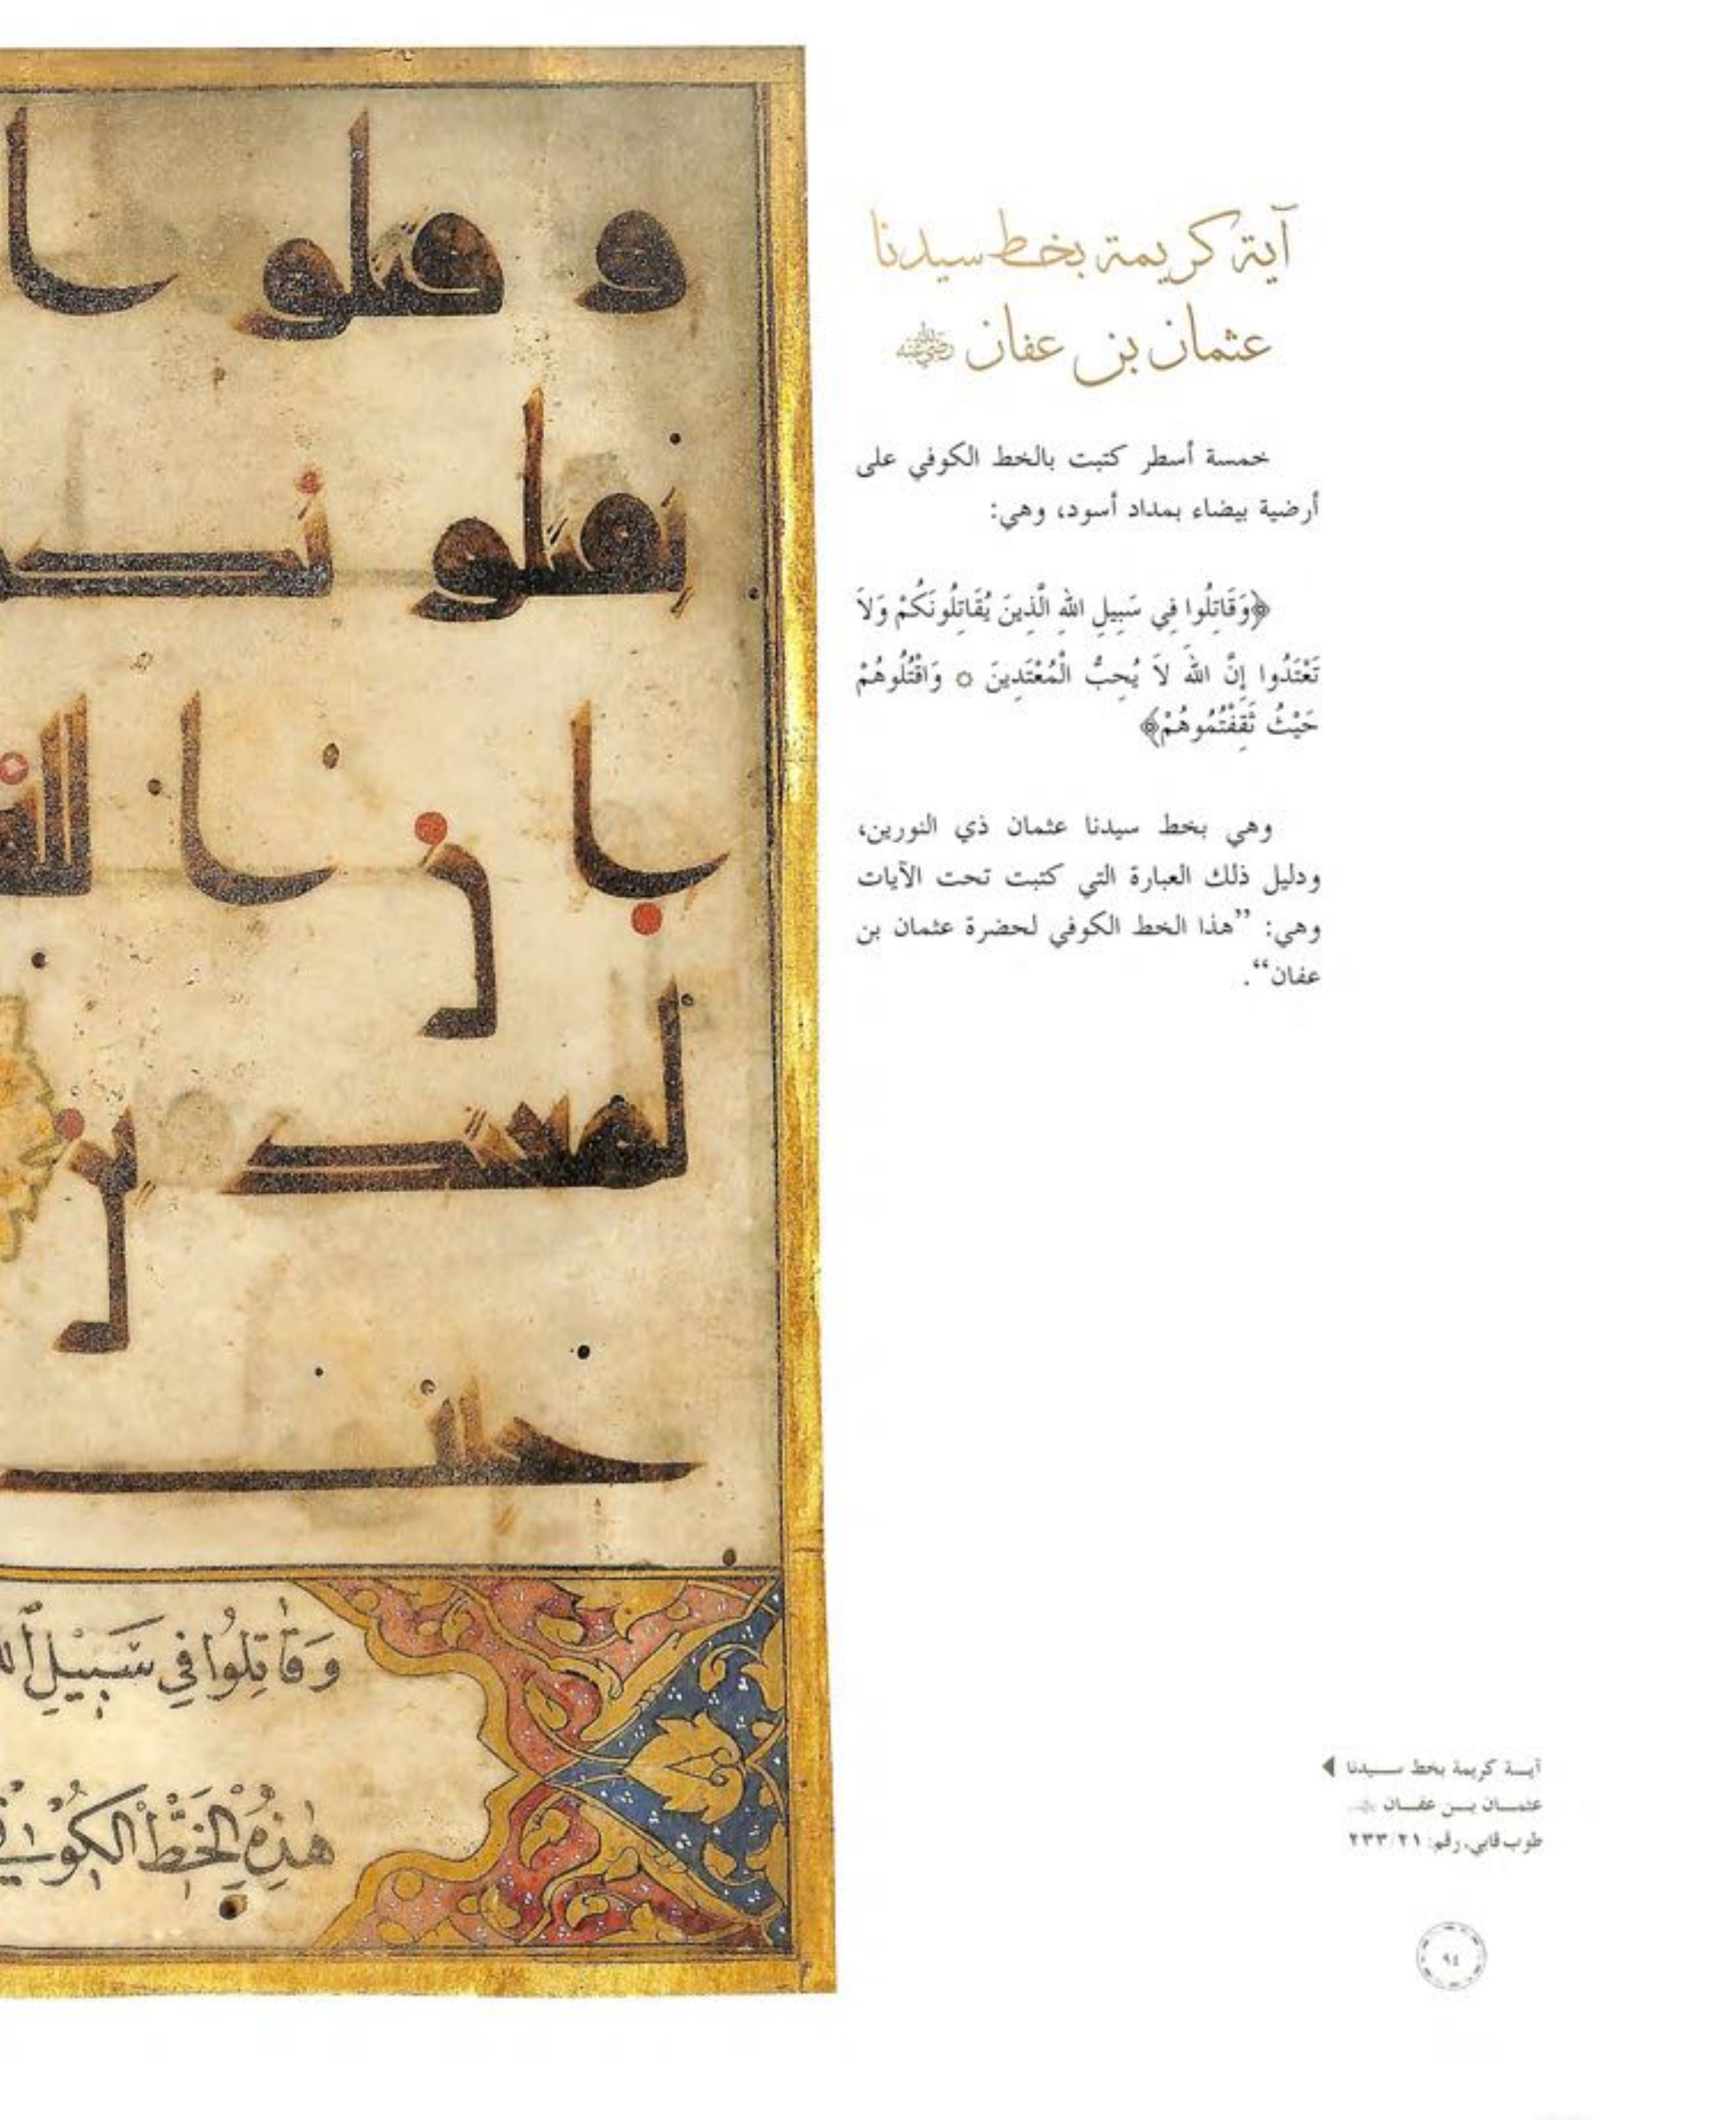 آية كريمة بخط سيدنا
عثمان بن عفان رضي الله عنه
خمسة أسطر كتبت بالخط الكوفي على
أرضية بيضاء بمداد أسود، وهي:
﴿وَقَاتِلُوا فِي سَبِيلِ اللهِ الَّذِينَ يُقَاتِلُونَكُمْ وَلاَ
تَعْتَدُوا إِنَّ اللهَ لاَ يُحِبُّ الْمُعْتَدِينَ ۞ وَاقْتُلُوهُمْ
حَيْثُ ثَقِفْتُمُوهُمْ﴾
وهي بخط سيدنا عثمان ذي النورين،
ودليل ذلك العبارة التي كتبت تحت الآيات
وهي: ”هذا الخط الكوفي لحضرة عثمان بن
عفان“.
وَقَاتِلُوا فِي سَبِيلِ
هٰذِهِ الْخَطُّ الْكُوفِي
آيـة كريمة بخط سـيدنا
عثمـان بـن عفـان
طوب قابي، رقم: ٢٣٣/٢١
٩٤